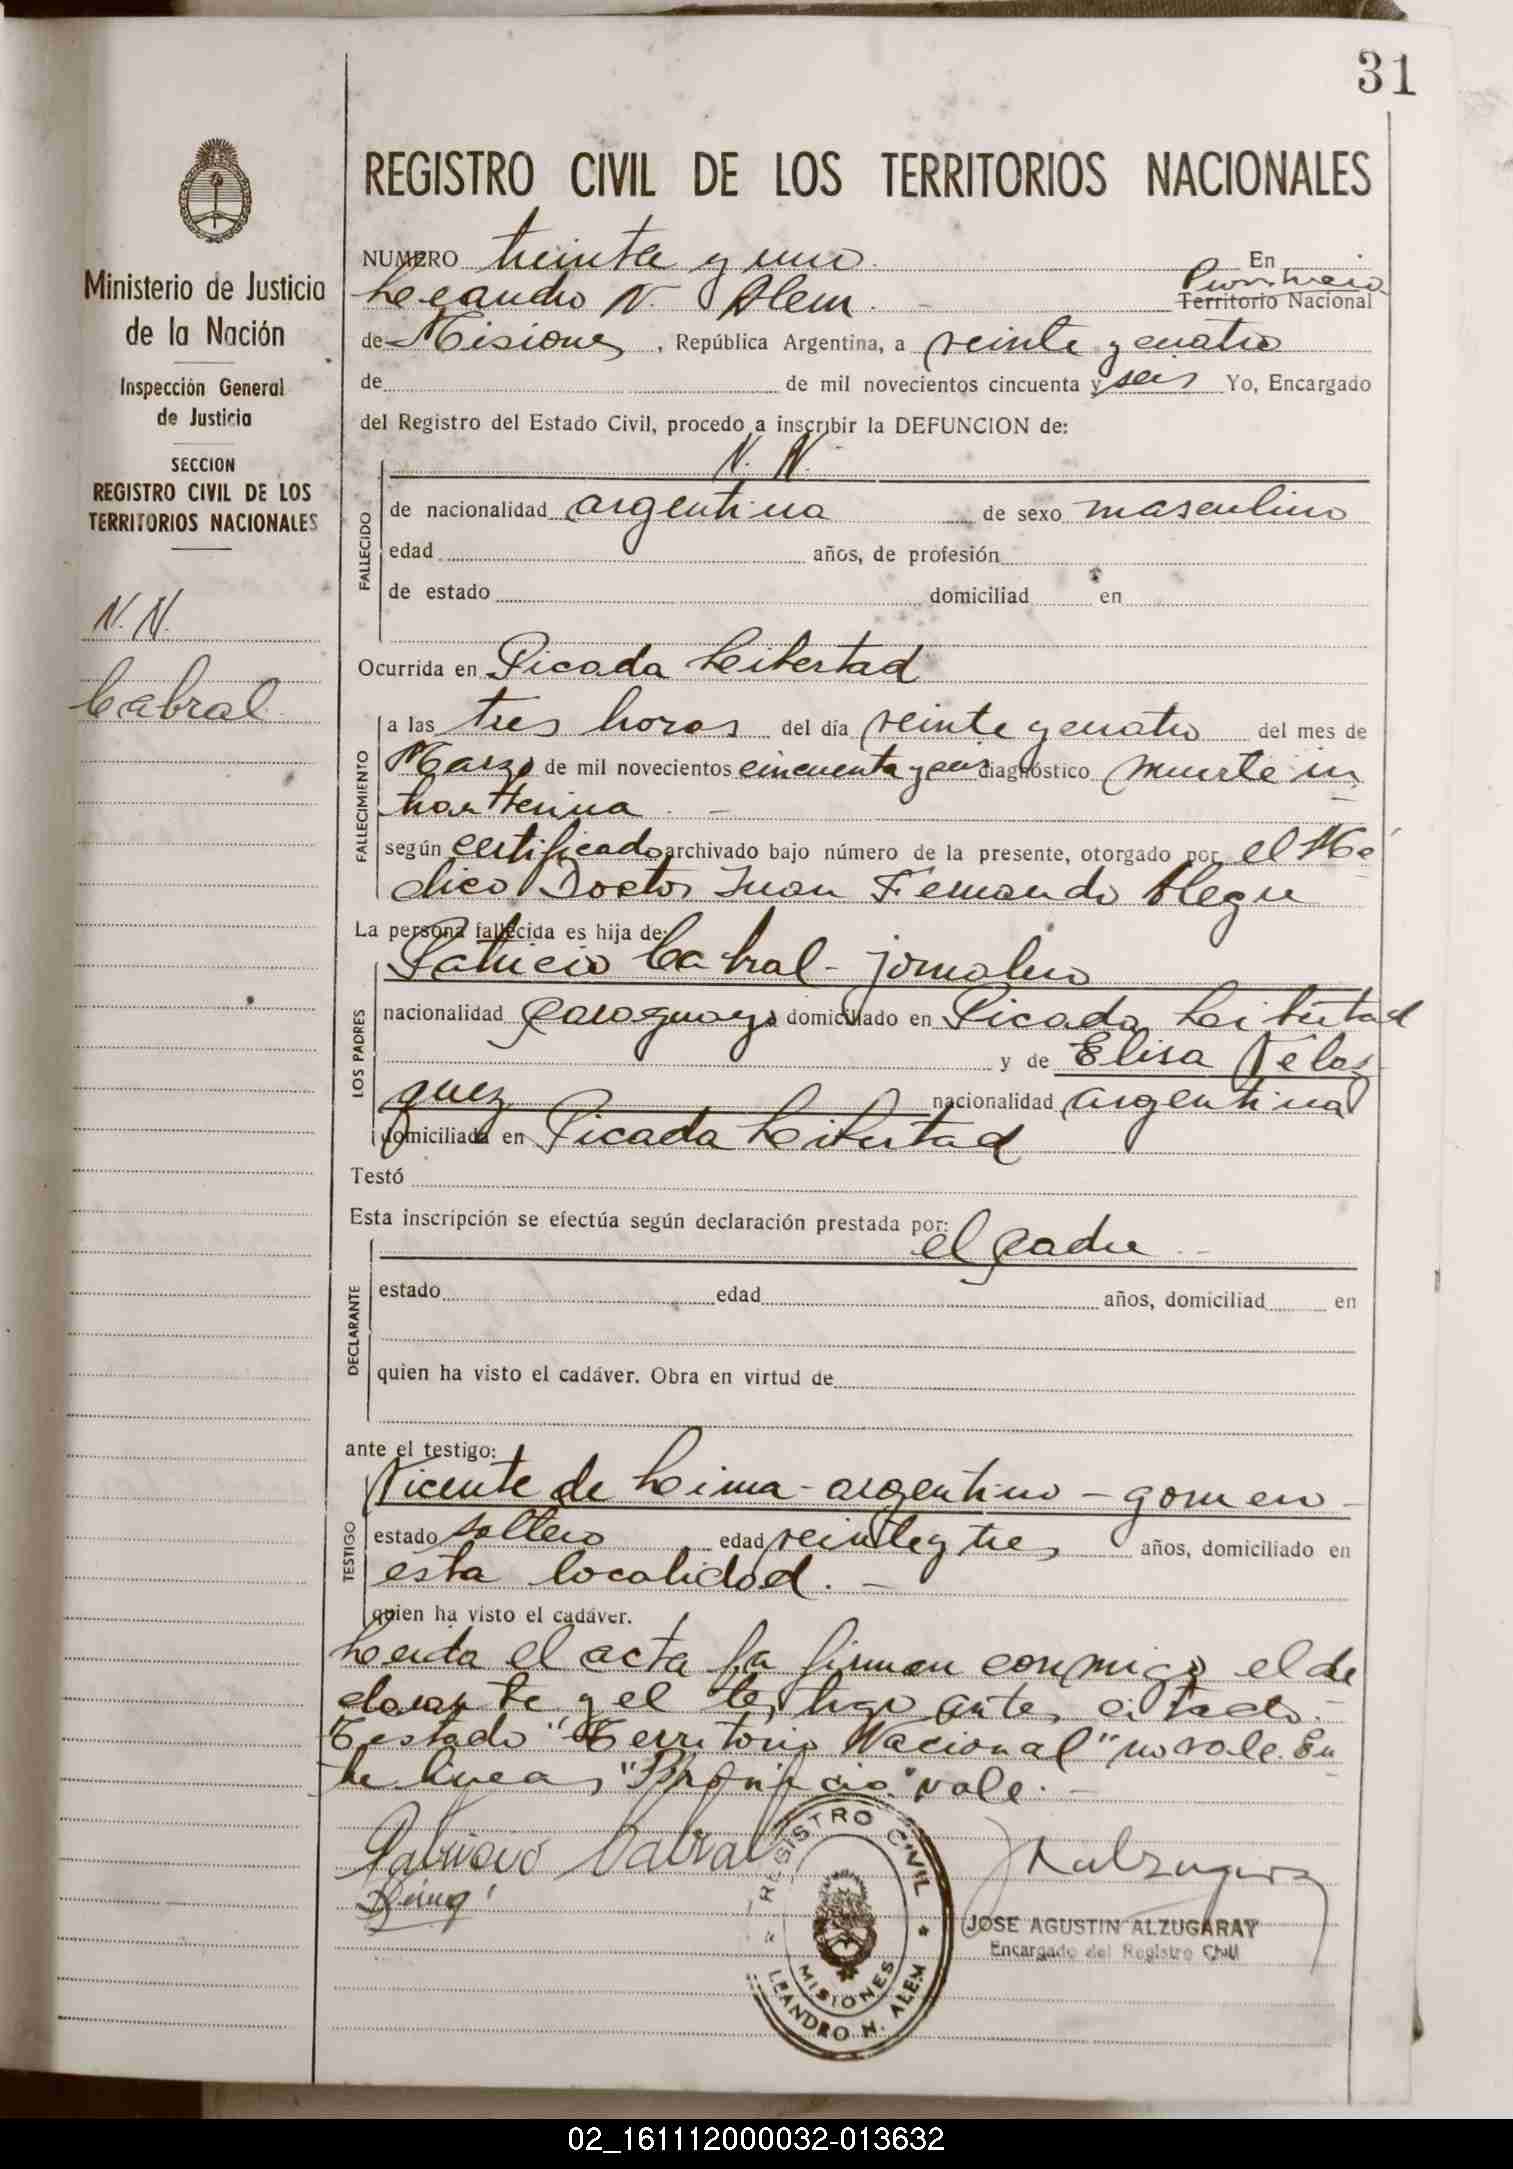 31
REGISTRO CIVIL DE LOS TERRITORIOS NACIONALES
Ministerio de Justicia
de la Nación
Inspección General
de Justicia
SECCION
REGISTRO CIVIL DE LOS
TERRITORIOS NACIONALES
N. N.
Cabral
NUMERO treinta y uno En
Leandro N. Alem. Provincia
Territorio Nacional
de Misiones, República Argentina, a veinte y cuatro
de de mil novecientos cincuenta y seis Yo, Encargado
del Registro del Estado Civil, procedo a inscribir la DEFUNCION de:
N. N.
FALLECIDO
de nacionalidad argentina de sexo masculino
edad años, de profesión
de estado domiciliad en
Ocurrida en Picada Libertad
FALLECIMIENTO
a las tres horas del día veinte y cuatro del mes de
Marzo de mil novecientos cincuenta y seis diagnóstico muerte in
según certificado archivado bajo número de la presente, otorgado por el Mé
dico Doctor Juan Fernando Alegre
La persona fallecida es hija de:
LOS PADRES
Patricio Cabral - jornalero
nacionalidad paraguaya domiciliado en Picada Libertad
y de Elisa Velaz
quez nacionalidad argentina
domiciliada en Picada Libertad
Testó
Esta inscripción se efectúa según declaración prestada por:
el padre
DECLARANTE
estado edad años, domiciliad en
quien ha visto el cadáver. Obra en virtud de
ante el testigo:
TESTIGO
Vicente de Lima - argentino -
estado soltero edad veinte y tres años, domiciliado en
esta localidad. -
quien ha visto el cadáver.
Leida el acta la firman conmigo el de
clarante y el testigo antes citado. -
Testado "Territorio Nacional" no vale. En
tre lineas "Provincia" vale. -
Patricio Cabral
REGISTRO CIVIL
MISIONES
LEANDRO N. ALEM
JOSE AGUSTIN ALZUGARAY
Encargado del Registro Civil
02_161112000032-013632